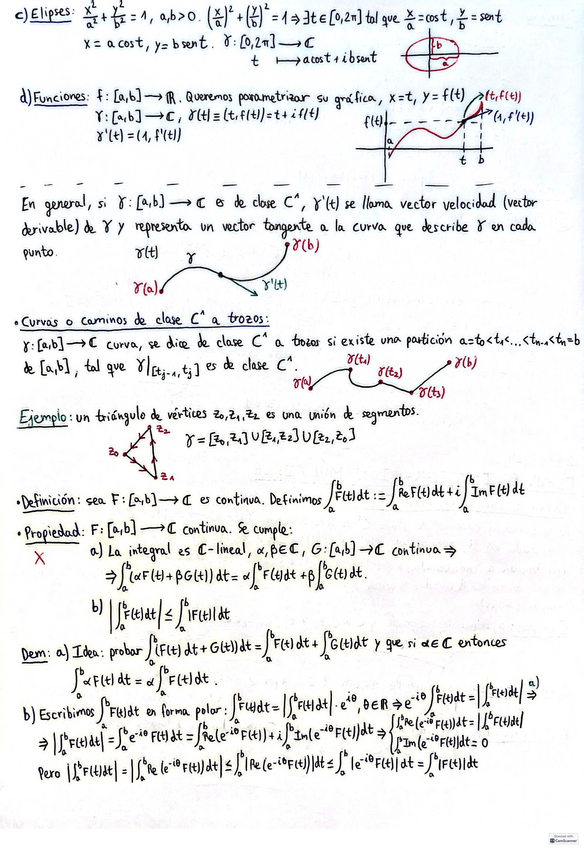 c) Elipses: x²/a² + y²/b² = 1, a,b>0. (x/a)² + (y/b)² = 1 ⇒ ∃t∈[0,2π] tal que x/a = cost, y/b = sent
x = a cost, y = b sent. γ: [0,2π] ⟶ ℂ
t ⟼ a cost + i b sent
b
a
d) Funciones: f: [a,b] ⟶ ℝ. Queremos parametrizar su gráfica, x=t, y=f(t)
γ: [a,b] ⟶ ℂ, γ(t) = (t, f(t)) = t + i f(t)
γ'(t) = (1, f'(t))
(t, f(t))
f(t)
(1, f'(t))
a
t b
En general, si γ: [a,b] ⟶ ℂ es de clase C¹, γ'(t) se llama vector velocidad (vector
derivable) de γ y representa un vector tangente a la curva que describe γ en cada
punto.
γ(t)
γ
γ(b)
γ(a)
γ'(t)
• Curvas o caminos de clase C¹ a trozos:
γ: [a,b] ⟶ ℂ curva, se dice de clase C¹ a trozos si existe una partición a=t₀<t₁<...<tₙ₋₁<tₙ=b
de [a,b], tal que γ|[tⱼ₋₁, tⱼ] es de clase C¹.
γ(a) γ(t₁) γ(t₂) γ(t₃) γ(b)
Ejemplo: un triángulo de vértices z₀, z₁, z₂ es una unión de segmentos.
z₂
z₀
z₁
γ = [z₀, z₁] ∪ [z₁, z₂] ∪ [z₂, z₀]
• Definición: sea F: [a,b] ⟶ ℂ es continua. Definimos ∫ₐᵇ F(t) dt := ∫ₐᵇ Re F(t) dt + i ∫ₐᵇ Im F(t) dt
• Propiedad: F: [a,b] ⟶ ℂ continua. Se cumple:
X
a) La integral es ℂ-lineal, α, β ∈ ℂ, G: [a,b] → ℂ continua ⇒
⇒ ∫ₐᵇ (αF(t) + βG(t)) dt = α ∫ₐᵇ F(t) dt + β ∫ₐᵇ G(t) dt.
b) |∫ₐᵇ F(t) dt| ≤ ∫ₐᵇ |F(t)| dt
Dem: a) Idea: probar ∫ₐᵇ (F(t) dt + G(t)) dt = ∫ₐᵇ F(t) dt + ∫ₐᵇ G(t) dt y que si α ∈ ℂ entonces
∫ₐᵇ αF(t) dt = α ∫ₐᵇ F(t) dt.
b) Escribimos ∫ₐᵇ F(t) dt en forma polar: ∫ₐᵇ F(t) dt = |∫ₐᵇ F(t) dt| · e^{iθ}, θ∈ℝ ⇒ e^{-iθ} ∫ₐᵇ F(t) dt = |∫ₐᵇ F(t) dt| ⇒ a)
⇒ |∫ₐᵇ F(t) dt| = ∫ₐᵇ e^{-iθ} F(t) dt = ∫ₐᵇ Re(e^{-iθ} F(t)) dt + i ∫ₐᵇ Im(e^{-iθ} F(t)) dt ⇒ { ∫ₐᵇ Re(e^{-iθ} F(t)) dt = |∫ₐᵇ F(t) dt|
∫ₐᵇ Im(e^{-iθ} F(t)) dt = 0
Pero |∫ₐᵇ F(t) dt| = |∫ₐᵇ Re(e^{-iθ} F(t)) dt| ≤ ∫ₐᵇ |Re(e^{-iθ} F(t))| dt ≤ ∫ₐᵇ |e^{-iθ} F(t)| dt = ∫ₐᵇ |F(t)| dt
Scanned with
CamScanner